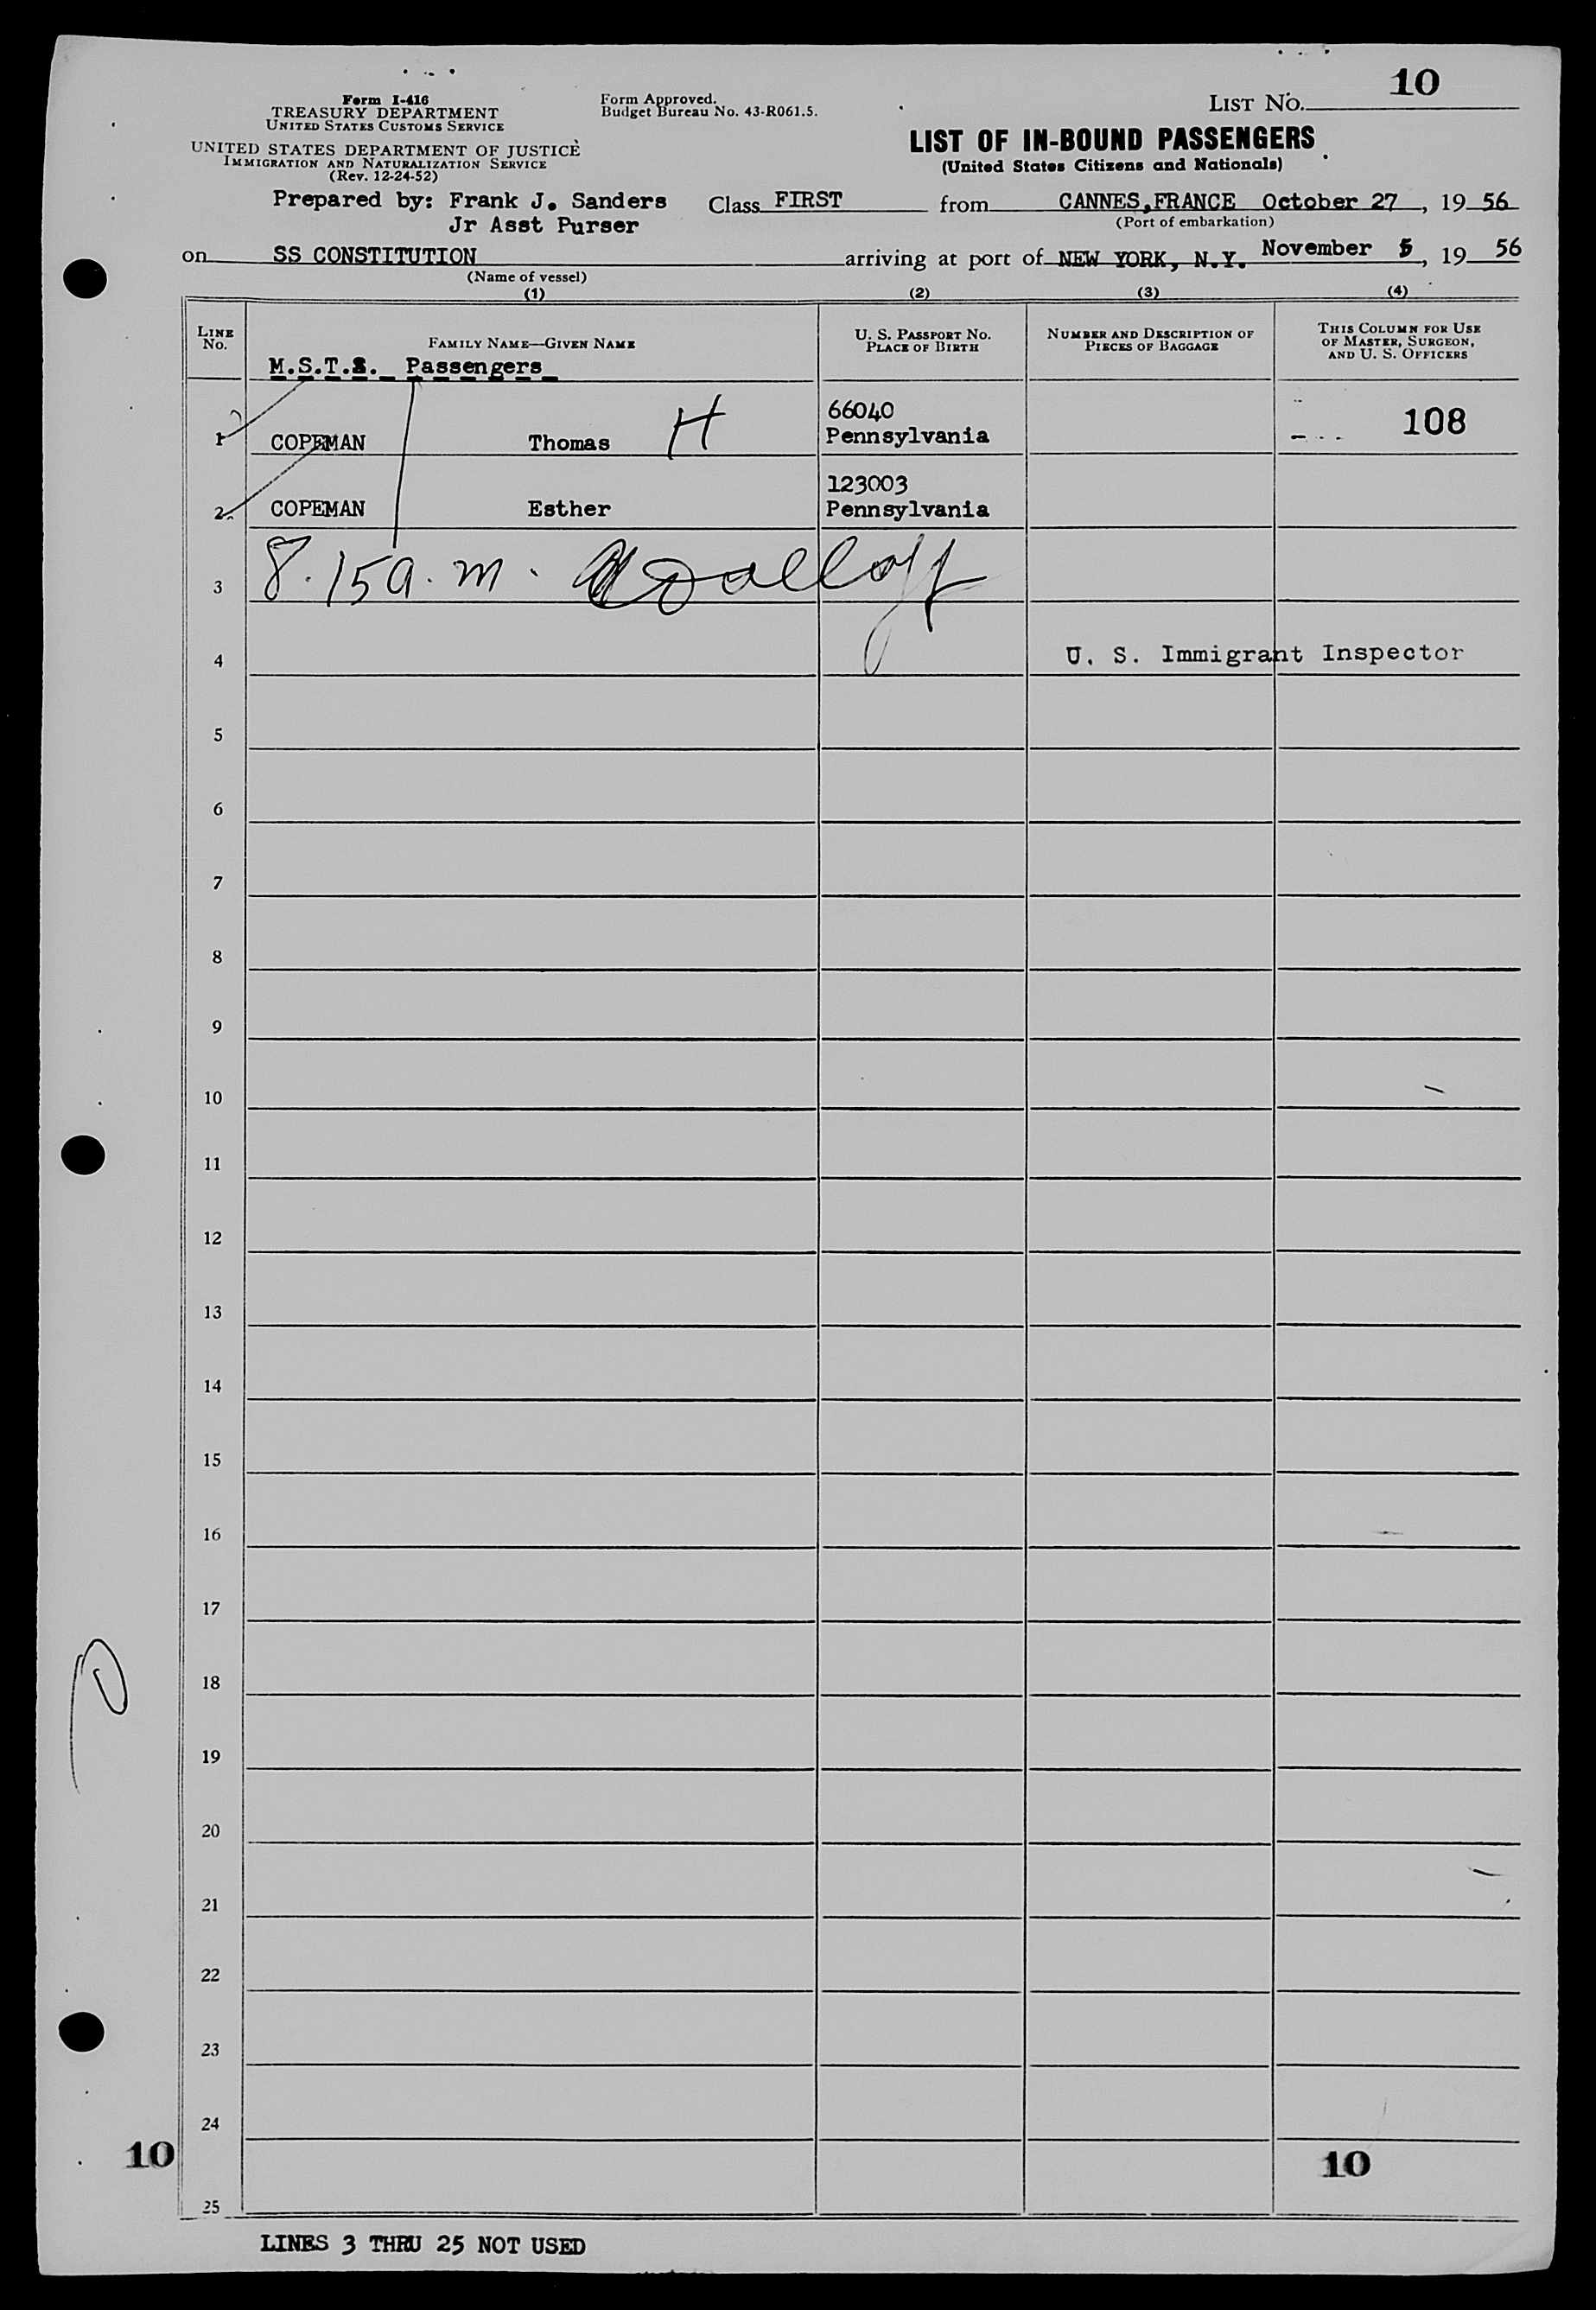 10
Form I-416
TREASURY DEPARTMENT
UNITED STATES CUSTOMS SERVICE
UNITED STATES DEPARTMENT OF JUSTICE
IMMIGRATION AND NATURALIZATION SERVICE
(Rev. 12-24-52)
Form Approved.
Budget Bureau No. 43-R061.5.
LIST NO.
LIST OF IN-BOUND PASSENGERS
(United States Citizens and Nationals)
Prepared by: Frank J. Sanders Class FIRST from CANNES,FRANCE October 27, 19 56
Jr Asst Purser (Port of embarkation)
on SS CONSTITUTION arriving at port of NEW YORK, N.Y. November 5, 19 56
(Name of vessel)
(1) (2) (3) (4)
LINE NO.
FAMILY NAME—GIVEN NAME
U. S. PASSPORT NO.
PLACE OF BIRTH
NUMBER AND DESCRIPTION OF
PIECES OF BAGGAGE
THIS COLUMN FOR USE
OF MASTER, SURGEON,
AND U. S. OFFICERS
M.S.T.S. Passengers
66040
1 COPEMAN Thomas H Pennsylvania 108
123003
2 COPEMAN Esther Pennsylvania
3 8.15 a.m.
4 U. S. Immigrant Inspector
5
6
7
8
9
10
11
12
13
14
15
16
17
18
19
20
21
22
23
24
10 10
25
LINES 3 THRU 25 NOT USED